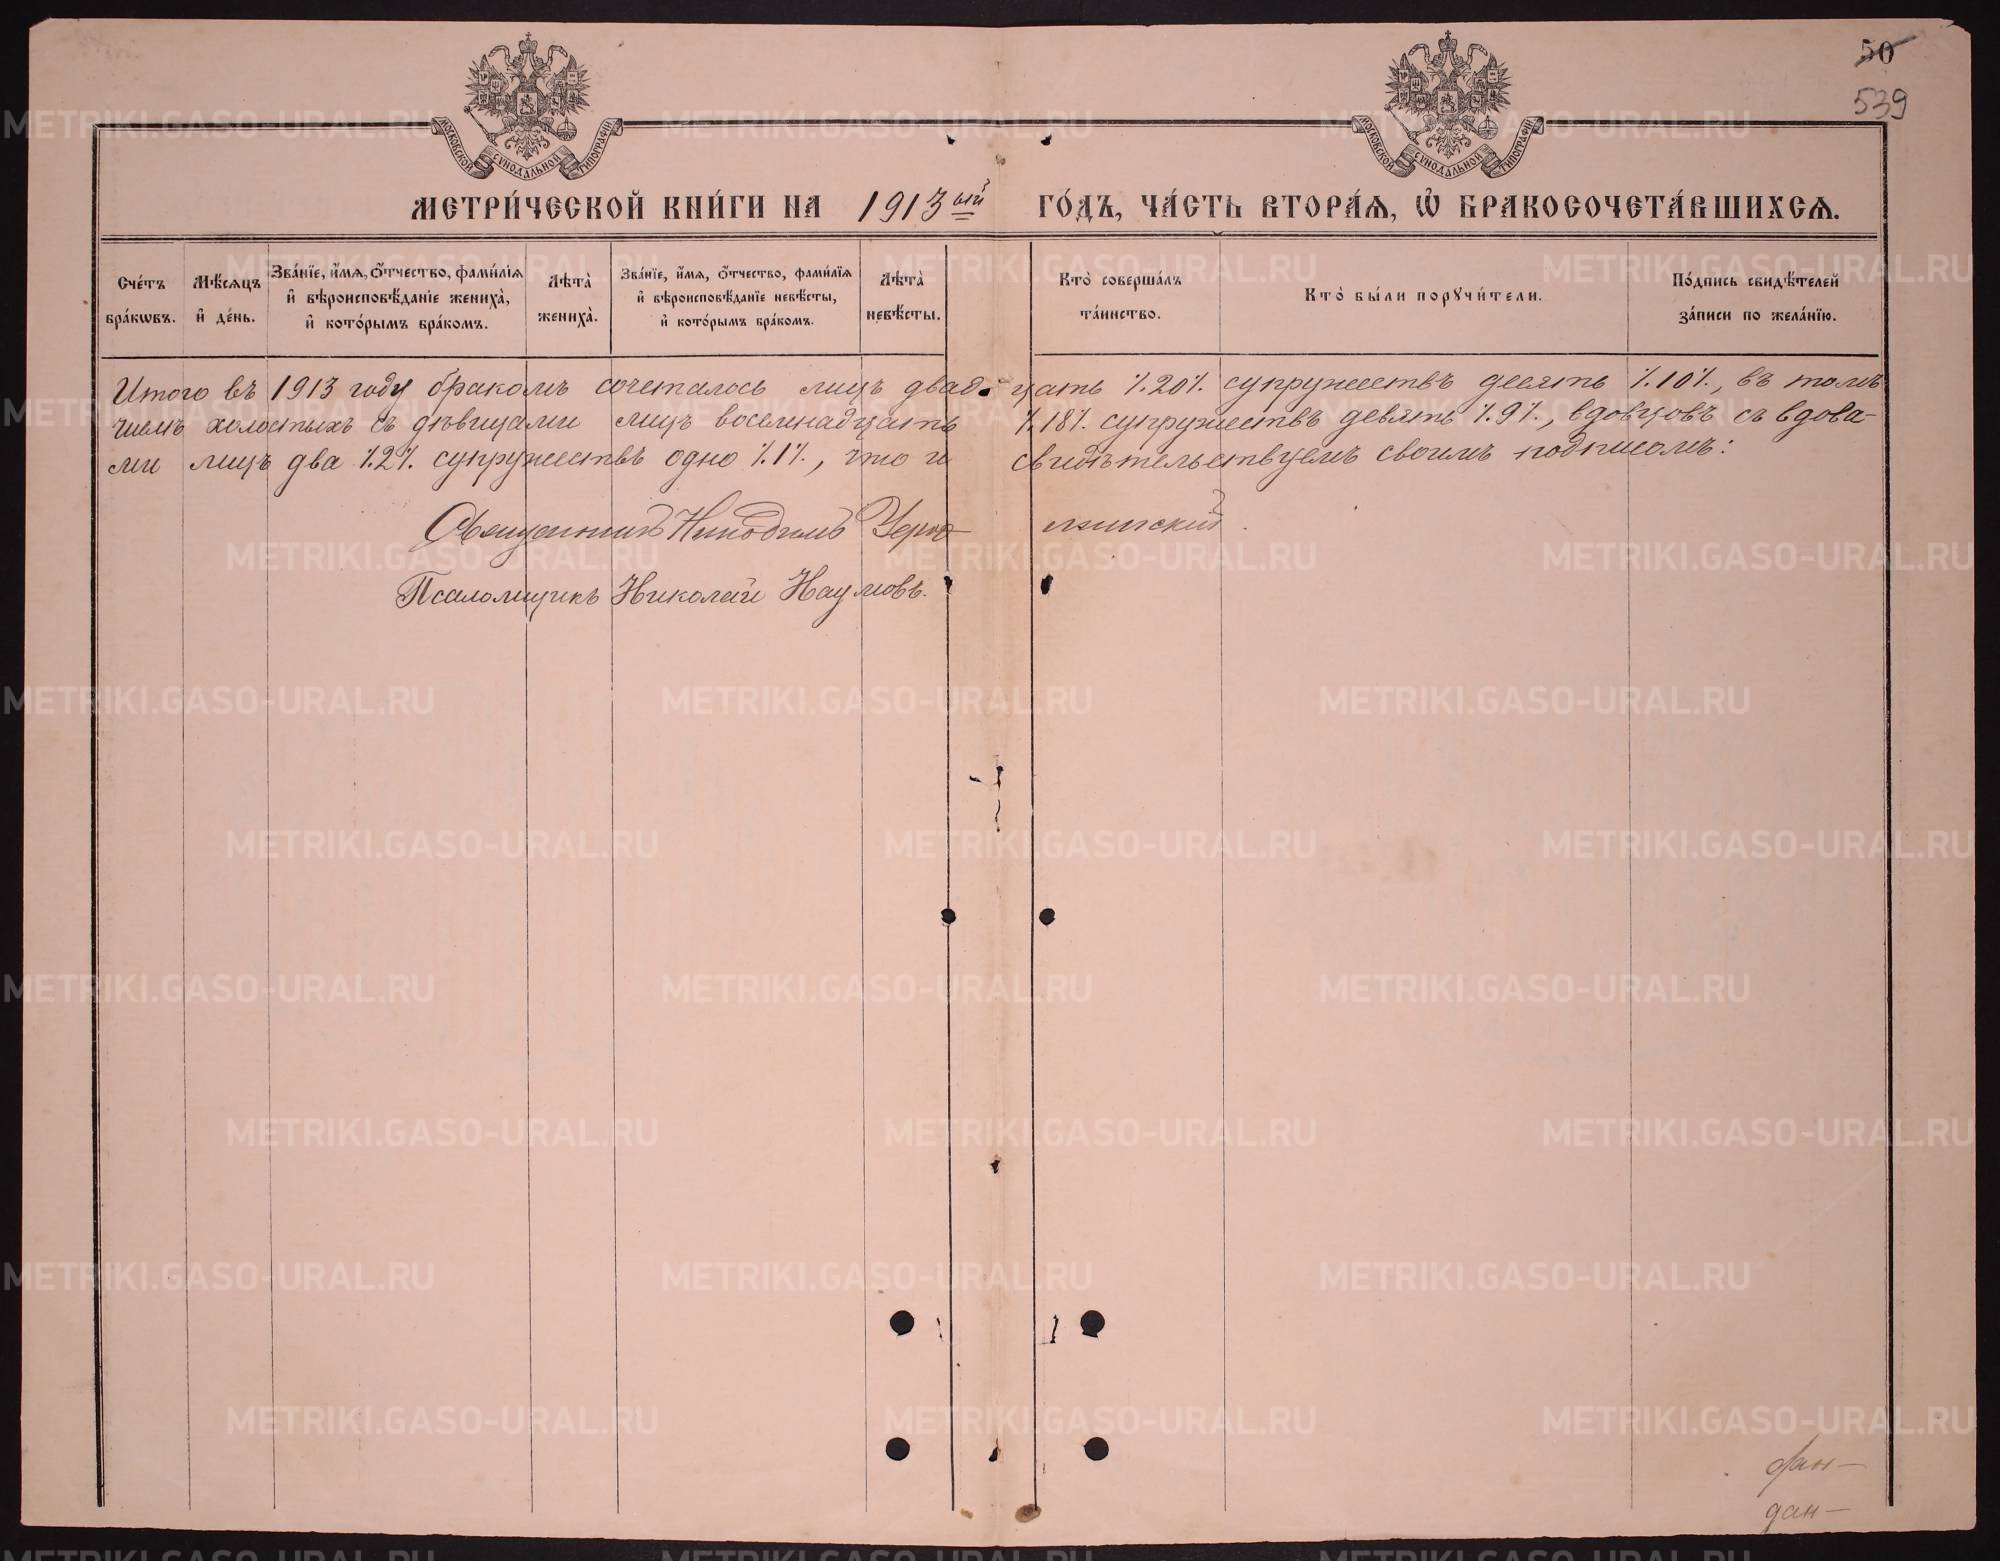 50
539
МОСКОВСКОЙ СѴНОДАЛЬНОЙ ТИПОГРАФІИ
МОСКОВСКОЙ СѴНОДАЛЬНОЙ ТИПОГРАФІИ
МЕТРИ́ЧЕСКОЙ КНИ́ГИ НА 1913ый ГО́ДЪ, ЧА́СТЬ ВТОРА́Я, Ѿ БРАКОСОЧЕТА́ВШИХСЯ.
Сче́тъ бра́кѡвъ.
Мѣ́сяцъ и де́нь.
Зва́нїе, и́мя, ѻ́тчество, фами́лїя и вѣроисповѣ́данїе жениха̀, и кото́рымъ бра́комъ.
Лѣта̀ жениха̀.
Зва́нїе, и́мя, ѻ́тчество, фами́лїя и вѣроисповѣ́данїе невѣ́сты, и кото́рымъ бра́комъ.
Лѣта̀ невѣ́сты.
Кто̀ соверша́лъ та́инство.
Кто̀ бы́ли порꙋчи́тели.
По́дпись свидѣ́телей за́писи по жела́нїю.
Итого въ 1913 году бракомъ сочеталось лицъ двадцать ⁒20⁒ супружествъ десять ⁒10⁒, въ томъ
числѣ холостыхъ съ дѣвицами лицъ восемнадцать ⁒18⁒ супружествъ девять ⁒9⁒, вдовцовъ съ вдова-
ми лицъ два ⁒2⁒ супружествъ одно ⁒1⁒, что и свидѣтельствуемъ своимъ подписомъ:
Священникъ Никодимъ
Псаломщикъ Николай Наумовъ.
дан—
METRIKI.GASO-URAL.RU